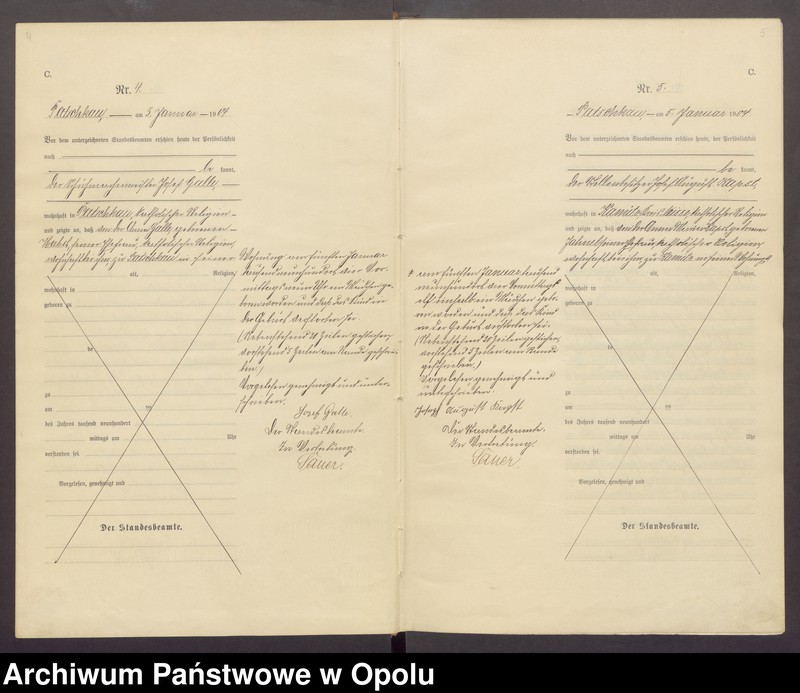 4
C.
Nr. 4.
Patschkau, am 5. Januar 1904
Vor dem unterzeichneten Standesbeamten erschien heute, der Persönlichkeit
nach
be kannt,
der Schuhmachermeister Josef Galle,
wohnhaft in Patschkau, katholischer Religion
und zeigte an, daß von der Anna Galle, geborenen
seiner Ehefrau, katholischer Religion,
wohnhaft bei ihm, zu Patschkau in seiner
alt, Religion,
wohnhaft in
geboren zu
zu
am
des Jahres tausend neunhundert
mittags um Uhr
verstorben sei.
Vorgelesen, genehmigt und
Der Standesbeamte.
Wohnung am fünften Januar
tausend neunhundert vier Vor-
mittags neun Uhr ein Mädchen ge-
boren worden und daß das Kind in
der Geburt verstorben sei.
(Nebenstehend 21 Zeilen gestrichen,
vorstehend 5 Zeilen am Rande geschrie-
ben.)
Vorgelesen, genehmigt und unter-
schrieben.
Josef Galle.
Der Standesbeamte.
In Vertretung.
Sauer.
5
C.
Nr. 5.
Patschkau, am 5. Januar 1904
Vor dem unterzeichneten Standesbeamten erschien heute, der Persönlichkeit
nach
be kannt,
der Stellenbesitzer Josef August
wohnhaft in Kamitz, Kreis Neisse, katholischer Religion
und zeigte an, daß von der geborenen
seiner Ehefrau, katholischer Religion,
wohnhaft bei ihm, zu Kamitz in seiner Wohnung
alt, Religion,
wohnhaft in
geboren zu
zu
am
des Jahres tausend neunhundert
mittags um Uhr
verstorben sei.
Vorgelesen, genehmigt und
Der Standesbeamte.
am fünften Januar tausend
neunhundert vier Vormittags
elf einhalb ein Mädchen gebo-
ren worden und daß das Kind
in der Geburt verstorben sei.
(Nebenstehend Zeilen gestrichen,
vorstehend 5 Zeilen am Rande
geschrieben.)
Vorgelesen, genehmigt und
unterschrieben.
Josef August
Der Standesbeamte.
In Vertretung.
Sauer
Archiwum Państwowe w Opolu